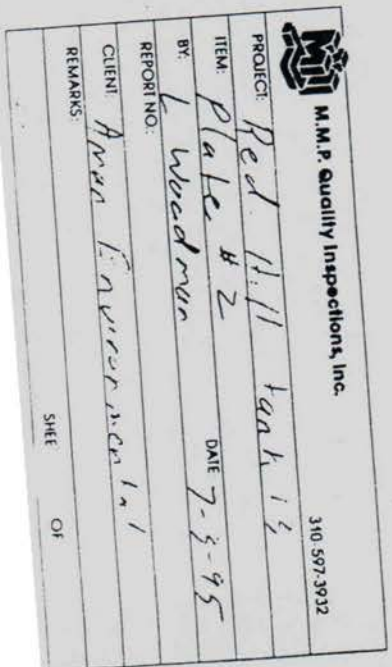 M.M.P. Quality Inspections, Inc.
310-597-3932
PROJECT: Red Hill tank
ITEM: Plate #2
DATE 7-
-95
BY: L Woodman
REPORT NO:
CLIENT: Environmental
REMARKS:
SHEE OF